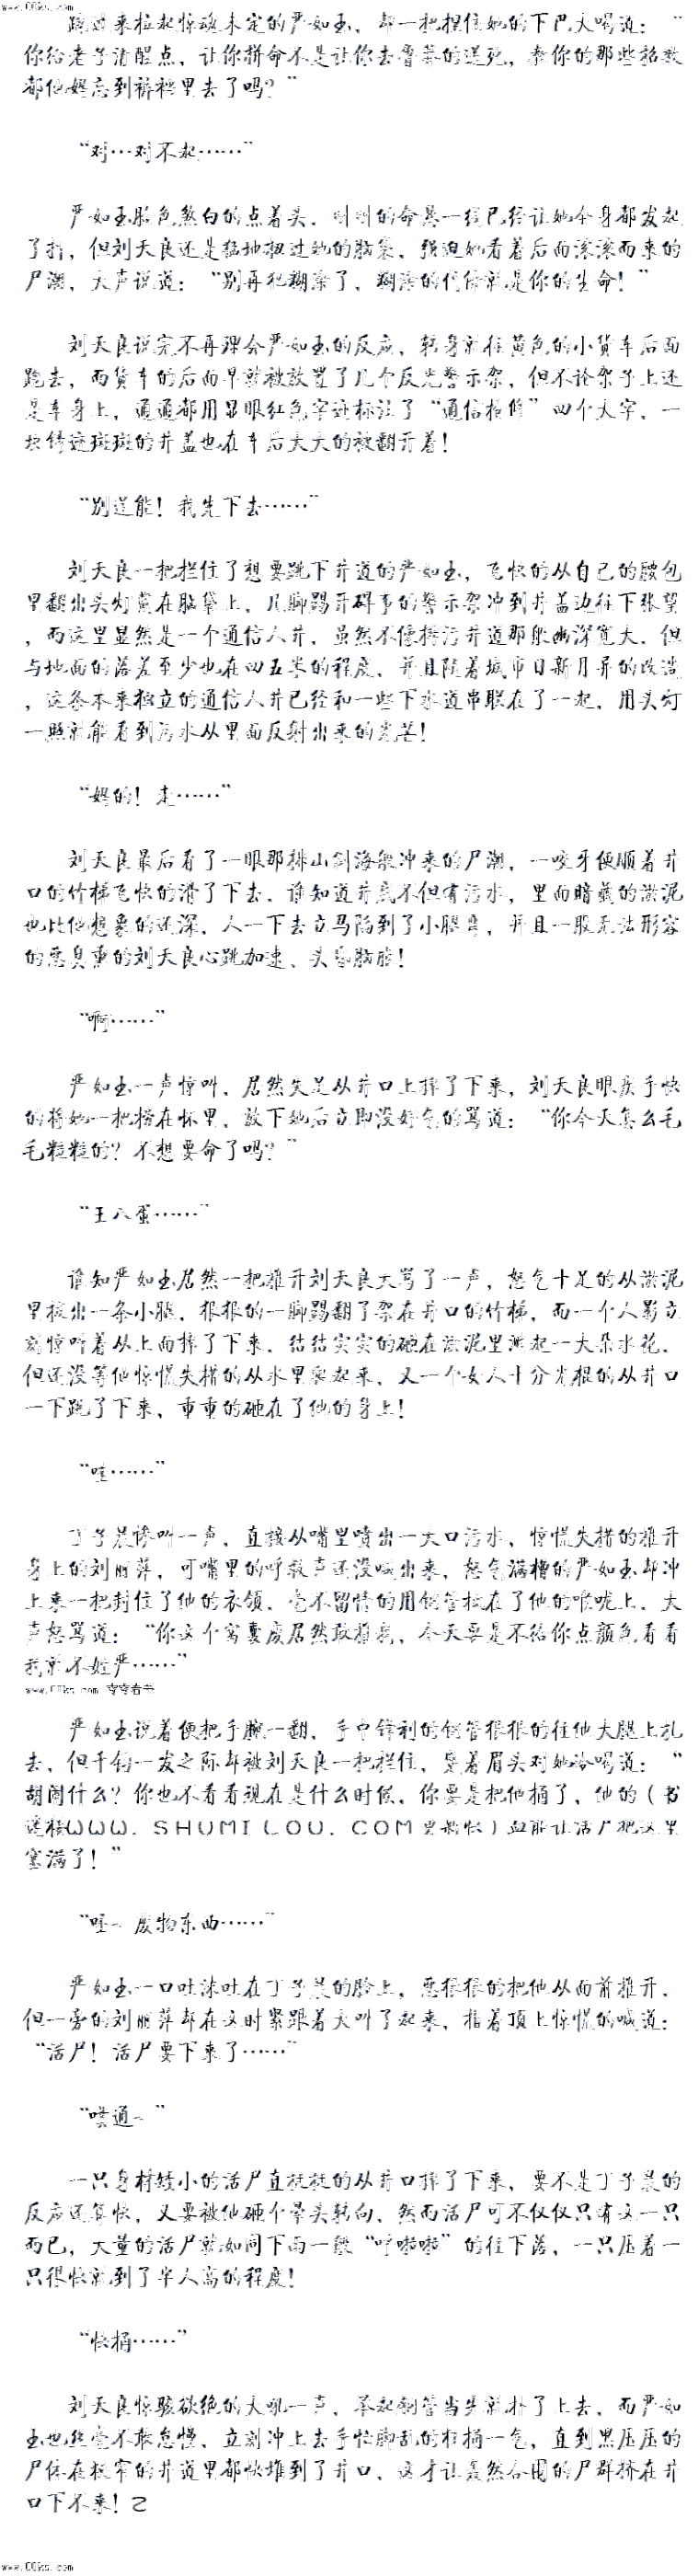 www.00ks.com
跑过来拉起惊魂未定的严如玉，却一把捏住她的下巴大喝道：“
你给老子清醒点，让你拼命不是让你去鲁莽的送死，教你的那些招数
都他妈忘到裤裆里去了吗？”
“对…对不起……”
严如玉脸色煞白的点着头，刚刚的命悬一线已经让她全身都发起
了抖，但刘天良还是猛地扭过她的脑袋，强迫她看着后面滚滚而来的
尸潮，大声说道：“别再犯糊涂了，糊涂的代价就是你的生命！”
刘天良说完不再理会严如玉的反应，转身就往黄色的小货车后面
跑去，而货车的后面早就被放置了几个反光警示架，但不论架子上还
是车身上，通通都用显眼红色字迹标注了“通信检修”四个大字，一
块锈迹斑斑的井盖也在车后大大的被翻开着！
“别逞能！我先下去……”
刘天良一把拦住了想要跳下井道的严如玉，飞快的从自己的腰包
里翻出头灯戴在脑袋上，几脚踢开碍事的警示架冲到井盖边往下张望
，而这里显然是一个通信人井，虽然不像排污井道那般幽深宽大，但
与地面的落差至少也在四五米的程度，并且随着城市日新月异的改造
，这条本来独立的通信人井已经和一些下水道串联在了一起，用头灯
一照就能看到污水从里面反射出来的光芒！
“妈的！走……”
刘天良最后看了一眼那排山倒海般冲来的尸潮，一咬牙便顺着井
口的竹梯飞快的滑了下去，谁知道井底不但有污水，里面暗藏的淤泥
也比他想象的还深，人一下去立马陷到了小腿肚，并且一股无法形容
的恶臭熏的刘天良心跳加速、头昏脑胀！
“啊……”
严如玉一声惊叫，居然失足从井口上摔了下来，刘天良眼疾手快
的将她一把捞在怀里，放下她后立即没好气的骂道：“你今天怎么毛
毛糙糙的？不想要命了吗？”
“王八蛋……”
谁知严如玉居然一把推开刘天良大骂了一声，怒气十足的从淤泥
里拔出一条小腿，狠狠的一脚踢翻了架在井口的竹梯，而一个人影立
刻惊叫着从上面摔了下来，结结实实的砸在淤泥里溅起一大朵水花，
但还没等他惊慌失措的从水里爬起来，又一个女人十分光棍的从井口
一下跳了下来，重重的砸在了他的身上！
“哇……”
丁子晨惨叫一声，直接从嘴里喷出一大口污水，惊慌失措的推开
身上的刘丽萍，可嘴里的呼救声还没喊出来，怒气满槽的严如玉却冲
上来一把封住了他的衣领，毫不留情的用钢管抵在了他的喉咙上，大
声怒骂道：“你这个窝囊废居然敢推我，今天要是不给你点颜色看看
我就不姓严……”
www.00ks.com
严如玉说着便把手腕一翻，手中锋利的钢管狠狠的往他大腿上扎
去，但千钧一发之际却被刘天良一把拦住，皱着眉头对她冷喝道：“
胡闹什么？你也不看看现在是什么时候，你要是把他捅了，他的（书
迷楼ＷＷＷ．ＳＨＵＭＩＬＯＵ．ＣＯＭ更新快）血能让活尸把这里
塞满了！”
“呸~ 废物东西……”
严如玉一口吐沫吐在丁子晨的脸上，恶狠狠的把他从面前推开，
但一旁的刘丽萍却在这时紧跟着大叫了起来，指着顶上惊慌的喊道：
“活尸！活尸要下来了……”
“噗通~ ”
一只身材矮小的活尸直挺挺的从井口摔了下来，要不是丁子晨的
反应还算快，又要被他砸个晕头转向，然而活尸可不仅仅只有这一只
而已，大量的活尸就如同下雨一般“哗啦啦”的往下落，一只压着一
只很快就到了半人高的程度！
“快捅……”
刘天良惊骇欲绝的大吼一声，举起钢管当先就扑了上去，而严如
玉也丝毫不敢怠慢，立刻冲上去手忙脚乱的狂捅一气，直到黑压压的
尸体在狭窄的井道里都快堆到了井口，这才让轰然合围的尸群挤在井
口下不来！乙
www.00ks.com